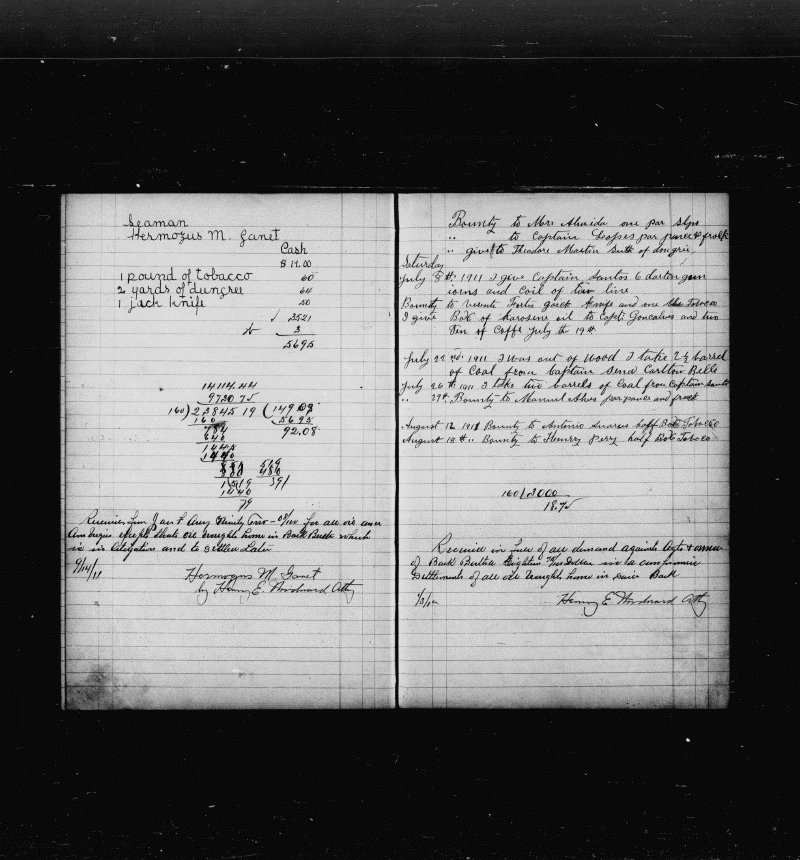 Seaman
Hermozus M. Ganet
Cash
$ 11.00
1 pound of tobacco 60
2 yards of dungree 64
1 jack knife 50
2521
3
5695
14114.44
9730 75
160) 23845 19 (149 09
160 5695
784 92.08
640
1445
1440
519
480
391
1519
1440
79
Received from
for all oil and
Ambergris except that oil brought home in Bark Bertha which
is in litigation and to settled Later
9/14/11
Hermogens M. Ganet
by Henry E. Woodward Atty
Bounty to Mrs Almeida one par Slps
" to Captain Loopses par pance & frock
" give to Theodore Martin Sutt of dongrie
Saturday
July 8th 1911 I give Captain Santos 6 darton gun
iorns and Coil of two line
Bounty to Vicente Fortes gack knife and one Tobaco
I give Box of Karosene oil to Capt. Goncalves and two
Tin of Coffe July th 19th
July 22nd 1911 I was out of Wood I take 2½ barrel
of Coal from Captain Senr Carlton Belle
July 26th 1911 I take two barrels of Coal from Captain Santos
" 29th Bounty to Manuel Alves par pance and frock
August 12 1911 Bounty to Antonio Suares half Box Tobacco
August 18th " Bounty to Henrry Perry half Box Tobaco
160/3000
18.75
Received in full of all demand against Agts & owners
of Bark Bertha Eighteen 75/100 Dollars in a compromise
Settlements of all oil brought home in said Bark
Henry E Woodward Atty